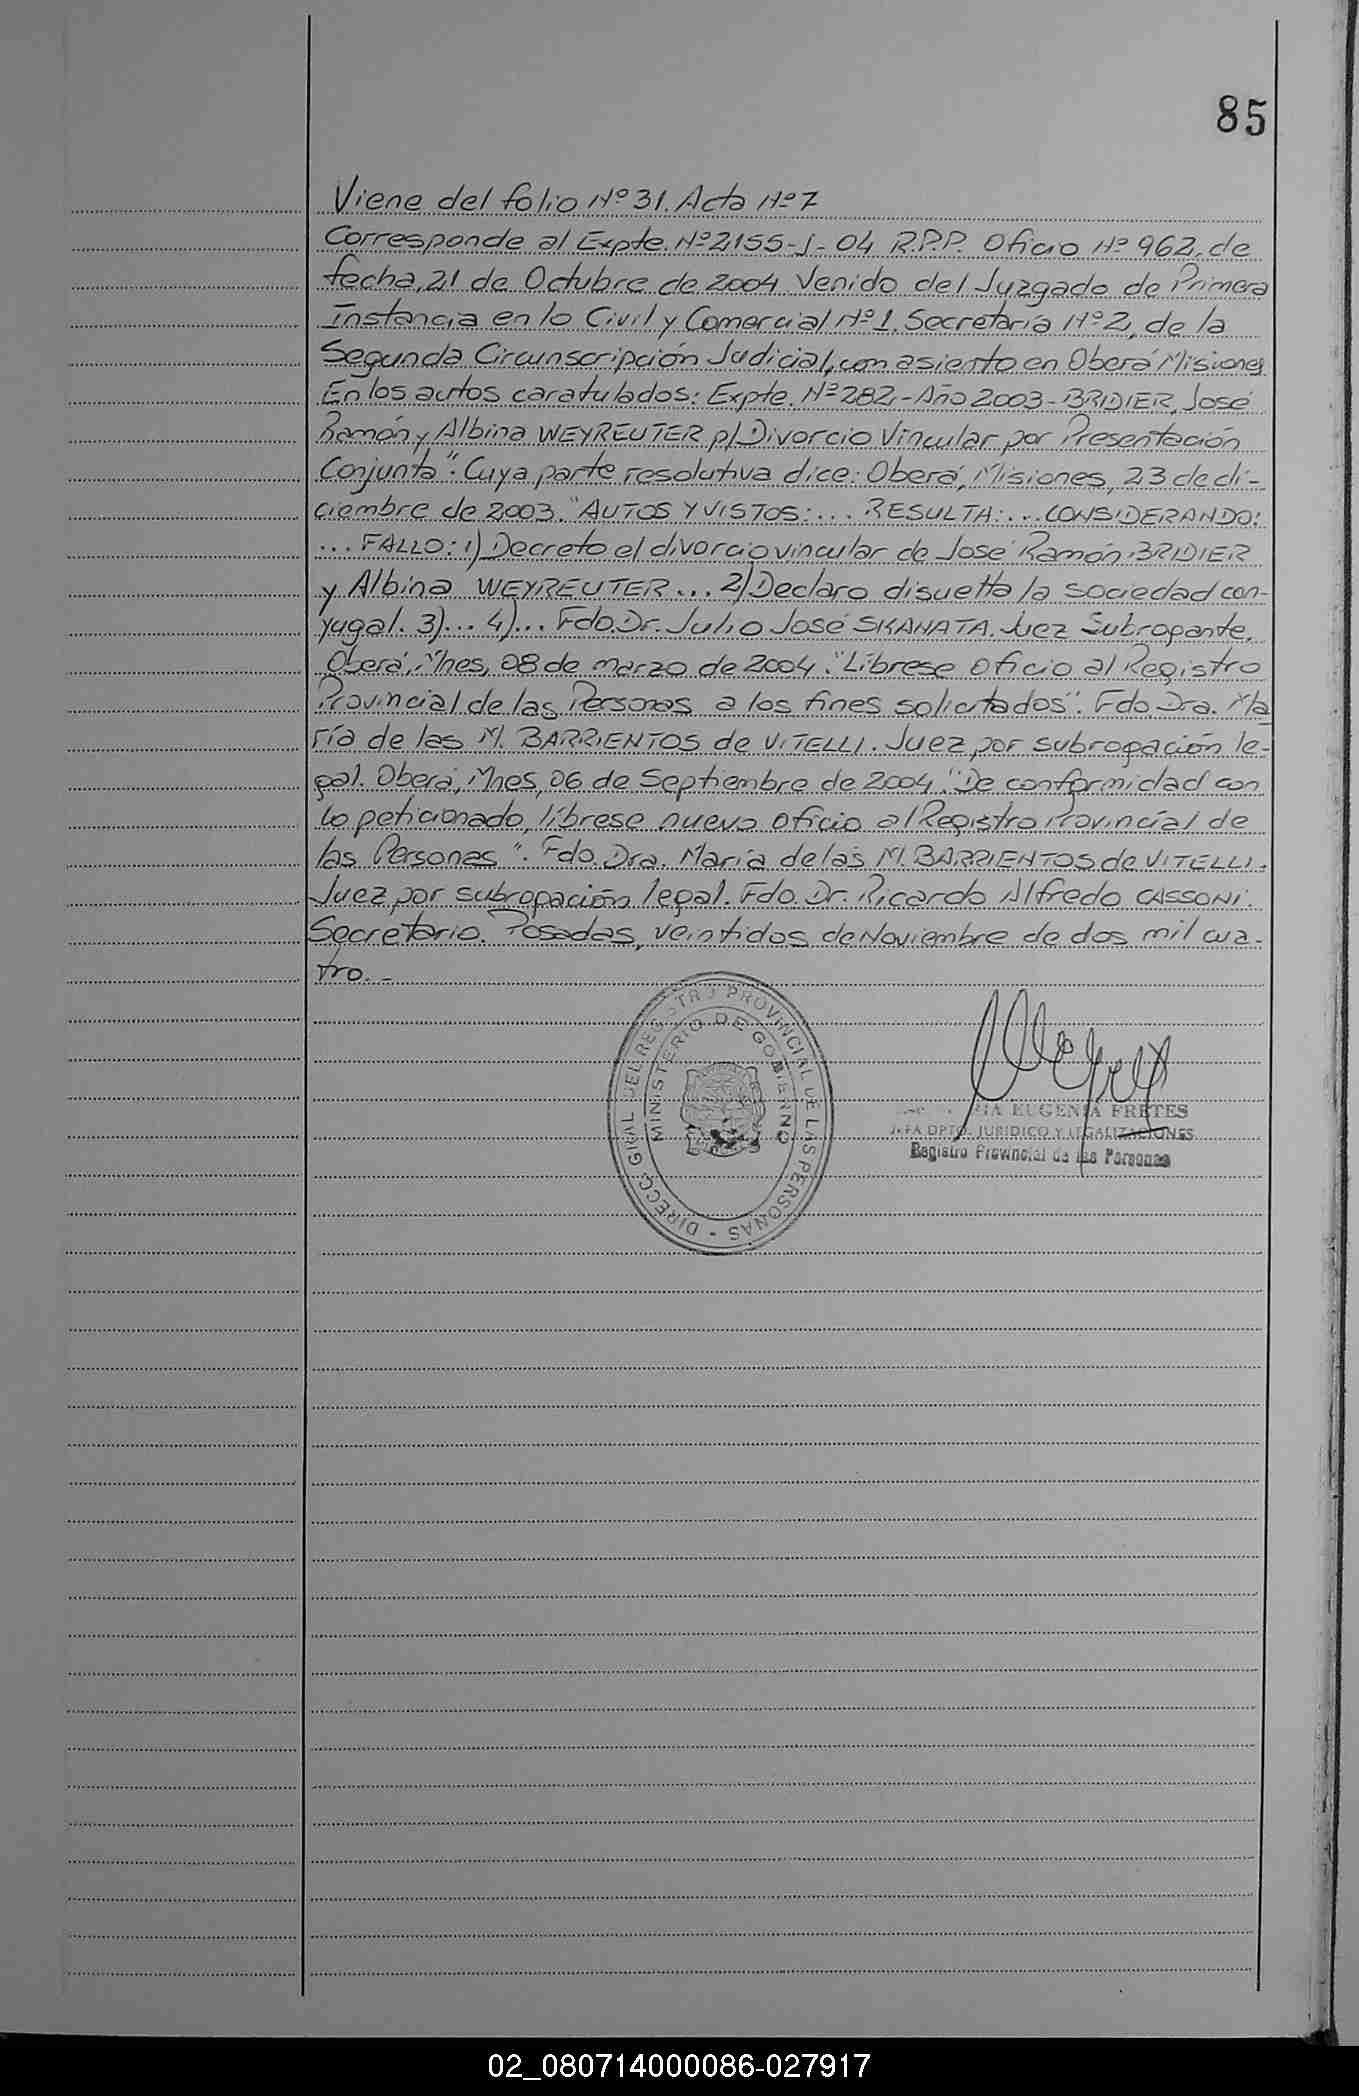 85
Viene del folio Nº 31. Acta Nº 7
Corresponde al Expte. Nº 2155-J-04 R.P.P. Oficio Nº 962, de
fecha, 21 de Octubre de 2004 Venido del Juzgado de Primera
Instancia en lo Civil y Comercial Nº 1. Secretaría Nº 2, de la
Segunda Circunscripción Judicial, con asiento en Oberá Misiones
En los autos caratulados: Expte. Nº 282 - Año 2003 - BRIDIER, José
Ramón y Albina WEYREUTER p/ Divorcio Vincular por Presentación
Conjunta". Cuya parte resolutiva dice: Oberá, Misiones, 23 de di-
ciembre de 2003. "AUTOS Y VISTOS:... RESULTA:... CONSIDERANDO:
... FALLO: 1) Decreto el divorcio vincular de José Ramón BRIDIER
y Albina WEYREUTER... 2) Declaro disuelta la sociedad con-
yugal. 3)... 4)... Fdo. Dr. Julio José SKANATA. Juez Subrogante.
Oberá, Mnes, 08 de marzo de 2004. "Líbrese oficio al Registro
Provincial de las Personas a los fines solicitados". Fdo. Dra. Ma
ría de las M. BARRIENTOS de VITELLI. Juez por subrogación le-
gal. Oberá, Mnes, 06 de Septiembre de 2004. "De conformidad con
lo peticionado, líbrese nuevo oficio al Registro Provincial de
las Personas". Fdo. Dra. María de las M. BARRIENTOS de VITELLI.
Juez por subrogación legal. Fdo. Dr. Ricardo Alfredo CASSONI.
Secretario. Posadas, veintidos de Noviembre de dos mil cua-
tro.-
DIRECC. GRAL DEL REGISTRO PROVINCIAL DE LAS PERSONAS -
MINISTERIO DE GOBIERNO
EUGENIA FRETES
JEFA DPTO. JURIDICO Y LEGALIZACIONES
Registro Provincial de las Personas
02_080714000086-027917